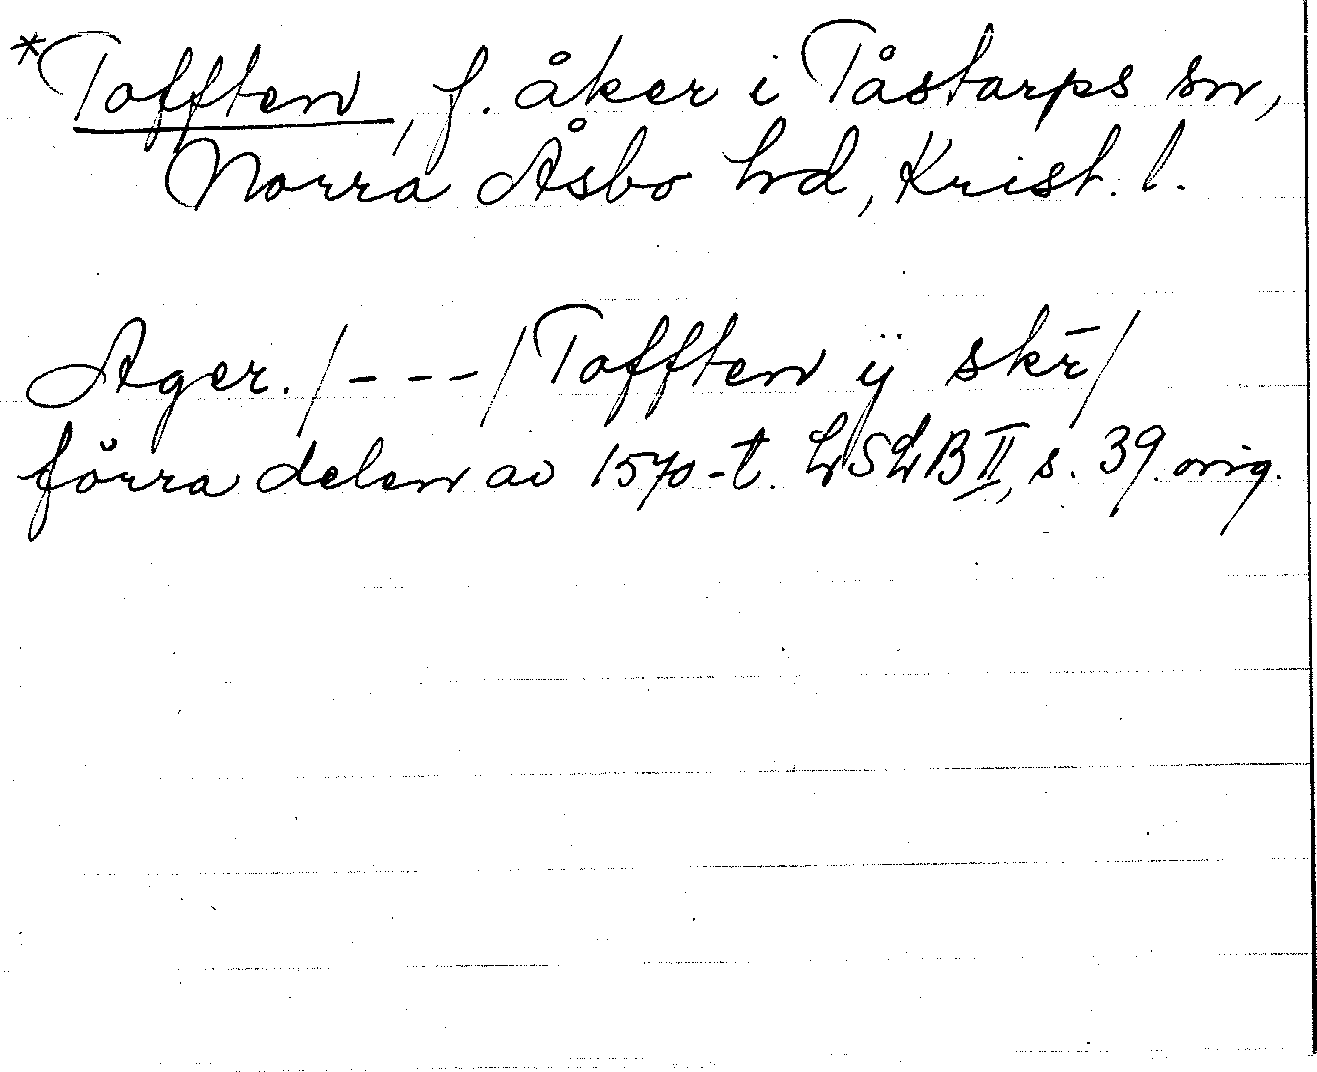 *Tofften, f. åker i Tåstarps sn,
Norra Åsbo hd, Krist. l.
Ager. /---/ Tofften ÿ skr̄/
förra delen av 1570-t. LSLB II, s. 39. orig.